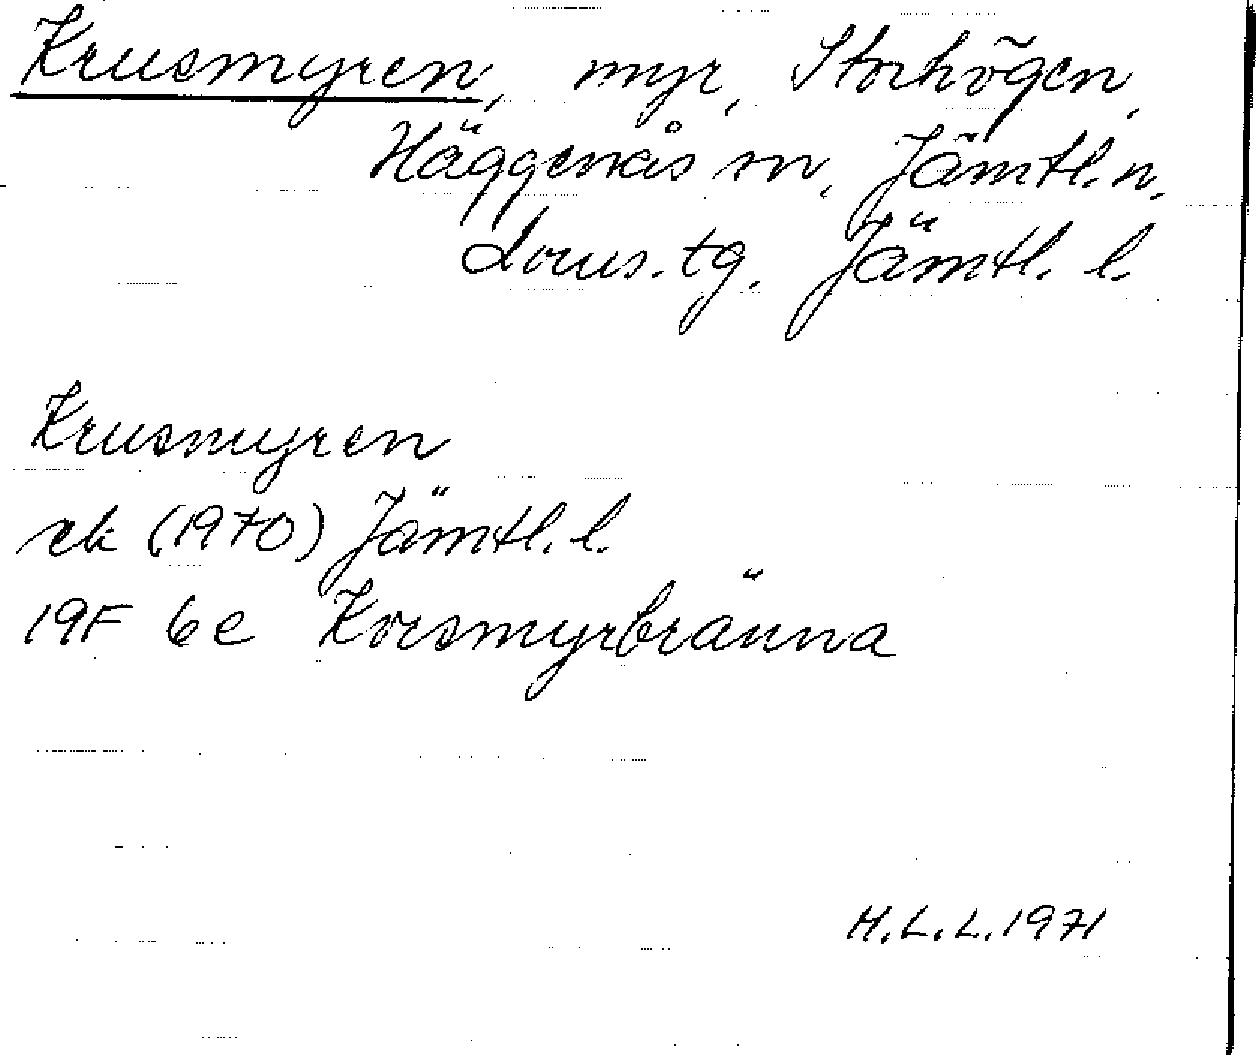 Krusmyren, myr, Storhögen,
Häggenås sn, Jämtl. n.
doms. tg. Jämtl. l.
Krusmyren
ek (1970) Jämtl. l.
19F 6e Korsmyrbränna
H.L.L. 1971